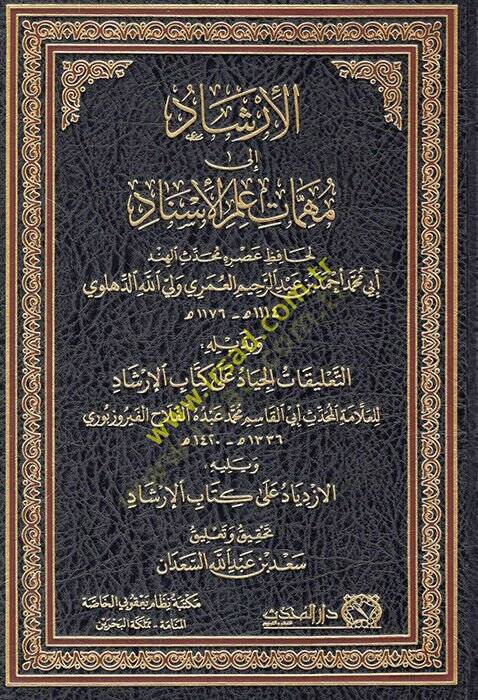 الإرشاد
إلى
مهمات علم الإسناد
لحافظ عصره محدث الهند
أبي محمد أحمد بن عبد الرحيم العمري ولي الله الدهلوي
١١١٤هـ - ١١٧٦هـ
ويليه:
التعليقات الجياد على كتاب الإرشاد
للعلامة المحدث أبي القاسم محمد عبده الفلاح الفيروزبوري
١٣٣٦هـ - ١٤٢٠هـ
ويليه:
الازدياد على كتاب الإرشاد
تحقيق وتعليق
سعد بن عبد الله السعدان
مكتبة نظام يعقوبي الخاصة
المنامة - مملكة البحرين